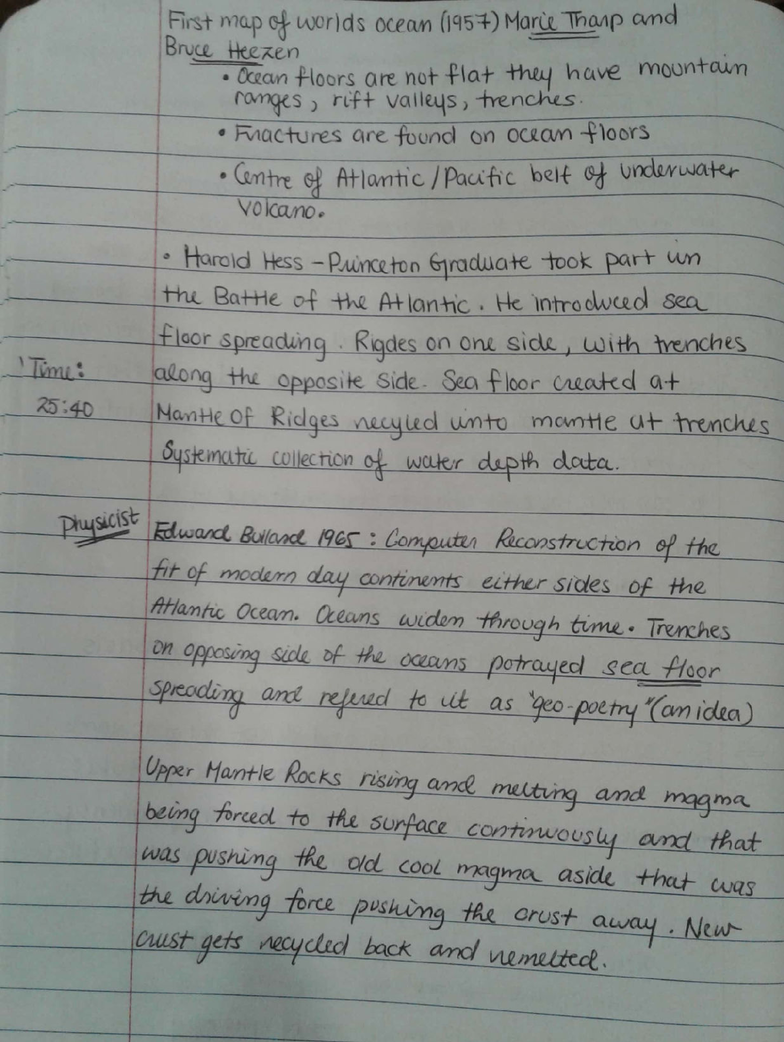 First map of worlds ocean (1957) Marie Tharp and
Bruce Heezen
• Ocean floors are not flat they have mountain
ranges, rift valleys, trenches.
• Fractures are found on ocean floors
• Centre of Atlantic/Pacific belt of underwater
volcano.
• Harold Hess - Princeton Graduate took part in
the Battle of the Atlantic. He introduced sea
floor spreading. Rigdes on one side, with trenches
Time: along the opposite side. Sea floor created at
25:40 Mantle of Ridges recyled into mantle at trenches
Systematic collection of water depth data.
Physicist Edward Bullard 1965: Computer Reconstruction of the
fit of modern day continents either sides of the
Atlantic Ocean. Oceans widen through time. Trenches
on opposing side of the oceans potrayed sea floor
spreading and refered to it as "geo-poetry" (an idea)
Upper Mantle Rocks rising and melting and magma
being forced to the surface continuously and that
was pushing the old cool magma aside that was
the driving force pushing the crust away. New
crust gets recycled back and remelted.